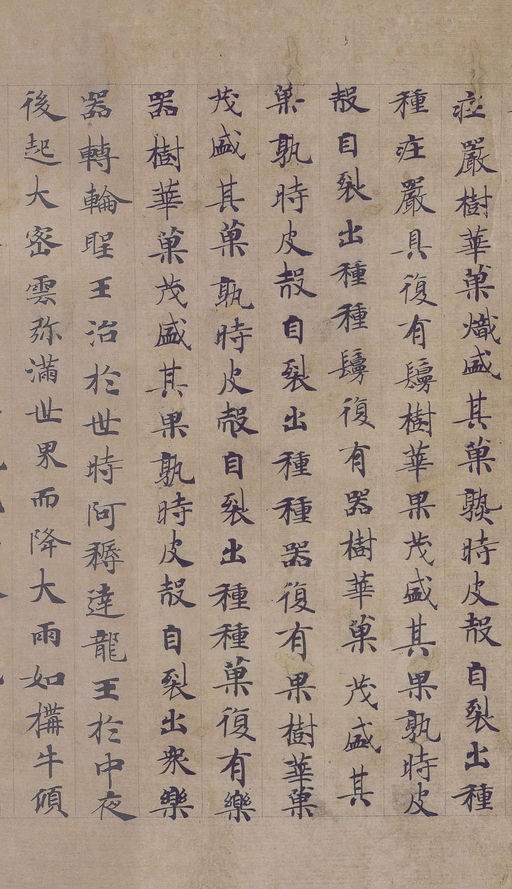 庄嚴樹華菓熾盛其菓孰時皮㲉自裂出種
種庄嚴具復有鬘樹華果茂盛其果孰時皮
㲉自裂出種種鬘復有器樹華菓茂盛其
菓孰時皮㲉自裂出種種器復有果樹華菓
茂盛其菓孰時皮㲉自裂出種種菓復有樂
器樹華菓茂盛其果孰時皮㲉自裂出衆樂
器轉輪聖王治於世時阿耨達龍王於中夜
後起大密雲弥滿世界而降大雨如構牛頃